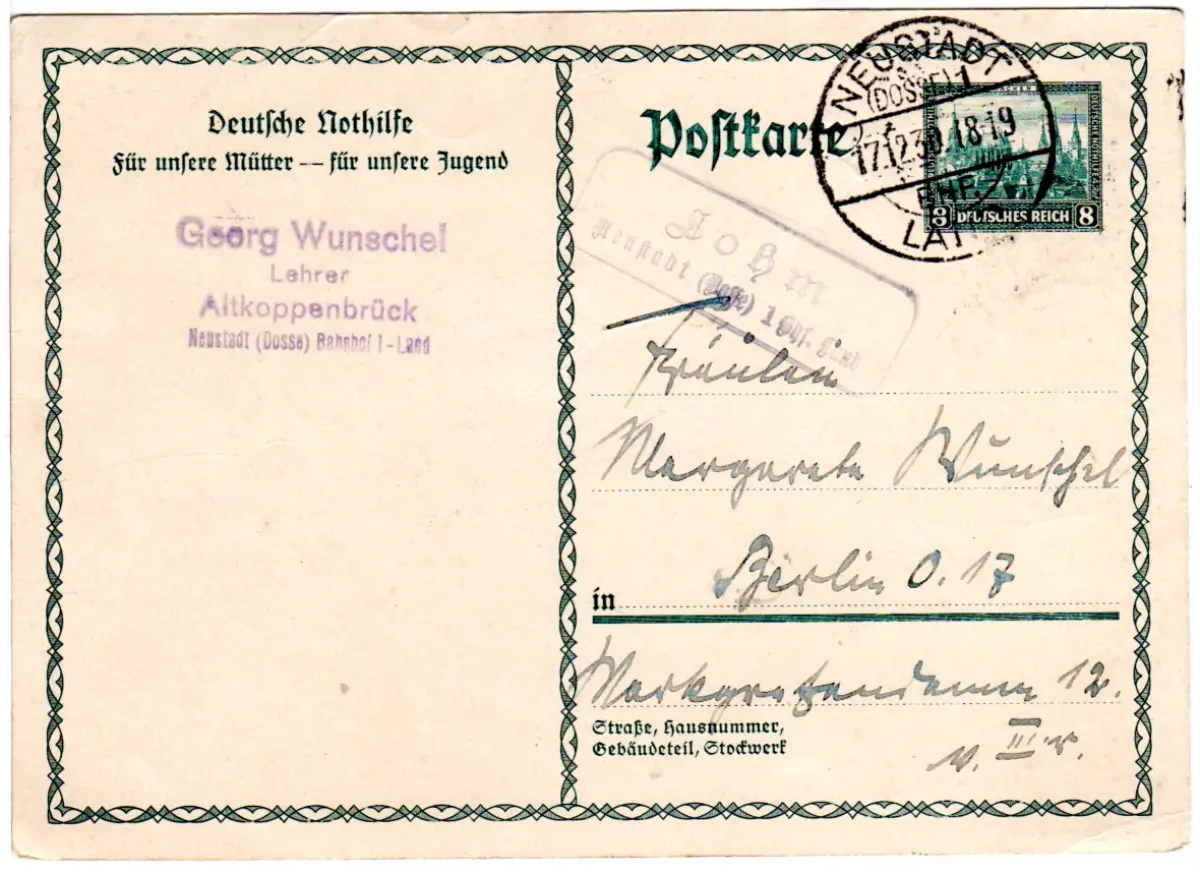 Deutsche Nothilfe
Für unsere Mütter — für unsere Jugend
Georg Wunschel
Lehrer
Altkoppenbrück
Neustadt (Dosse) Bahnhof 1-Land
Postkarte
NEUSTADT
(DOSSE) 1
17.12.30.18-19
BHF.
8 DEUTSCHES REICH 8
Lohm
Neustadt (Dosse) 1 Bhf. Land
Fräulein
Margarete Wunschel
Berlin O. 17
in
Markgrafendamm 12.
Straße, Hausnummer,
Gebäudeteil, Stockwerk
v. III r.